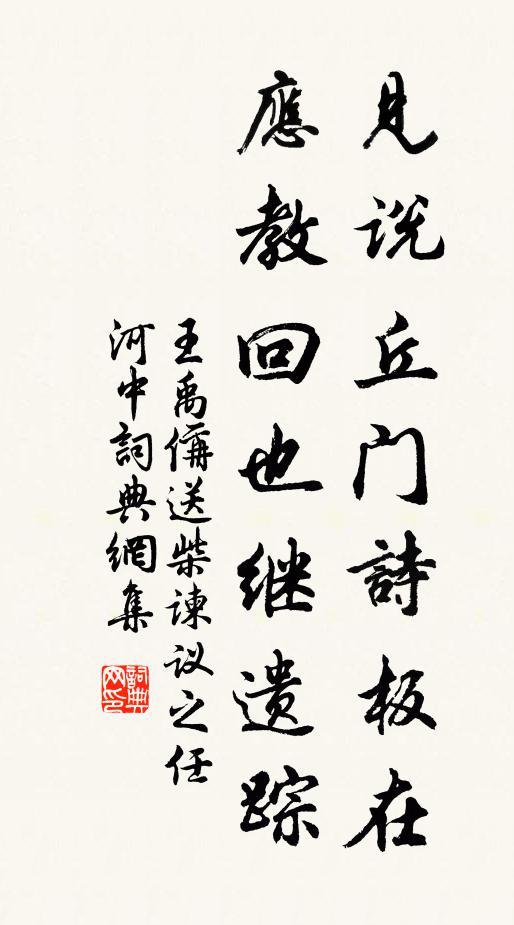 見说丘门詩板在
應教回也继遗踪
王禹偁送柴谏议之任
河中詞典網集
詞典网印